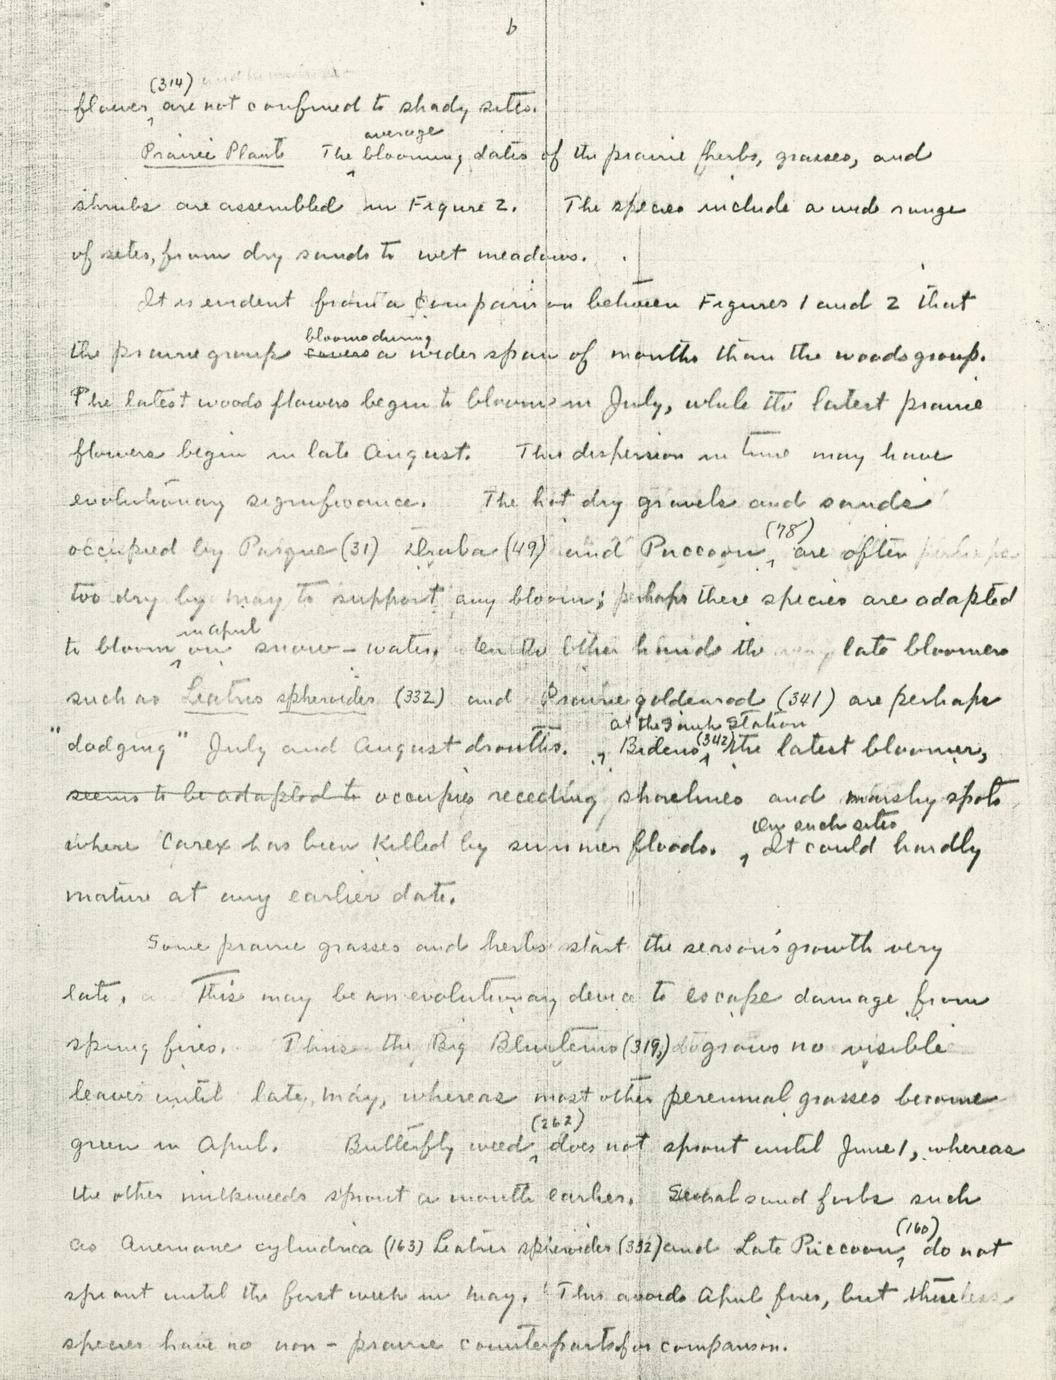 6
flower (314) are not confined to shady sites.
Prairie Plants The average blooming dates of the prairie herbs, grasses, and
shrubs are assembled in Figure 2. The species include a wide range
of sites, from dry sands to wet meadows.
It is evident from a comparison between Figures 1 and 2 that
the prairie group covers blooms during a wider span of months than the woods group.
The latest woods flowers begin to bloom in July, while the latest prairie
flowers begin in late August. This dispersion in time may have
evolutionary significance. The hot dry gravels and sands
occupied by Pasque (31) Draba (49) and Puccoon (78) are often perhaps
too dry by May to support any bloom; perhaps these species are adapted
to bloom in April on snow-water. On the other hand the very late bloomers
such as Liatris spheroidea (332) and Prairie goldenrod (341) are perhaps
"dodging" July and August drouths. At the Shack Station Bidens (342) the latest bloomer,
seems to be adapted to occupies receding shorelines and marshy spots
where Carex has been killed by summer floods. On such sites It could hardly
mature at any earlier date.
Some prairie grasses and herbs start the season's growth very
late. This may be an evolutionary device to escape damage from
spring fires. Thus the Big Bluestem (319) grows no visible
leaves until late May, whereas most other perennial grasses become
green in April. Butterfly weed (262) does not sprout until June 1, whereas
the other milkweeds sprout a month earlier. Several sand forbs such
as Anemone cylindrica (163) Liatris spheroidea (332) and Late Puccoon (160) do not
sprout until the first week in May. This avoids April fires, but these
species have no non-prairie counterparts for comparison.